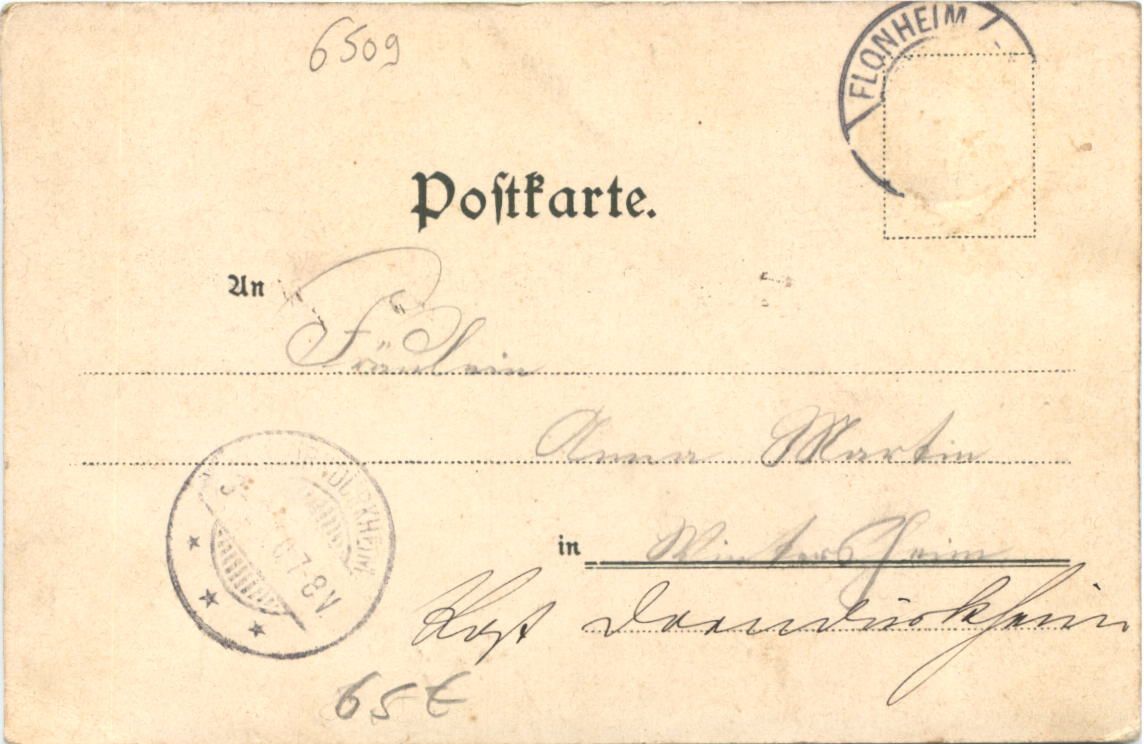 6509
FLONHEIM
Postkarte.
An
Fräulein
Anna Martin
in Wintersheim
Dorndürkheim
7-8V
65 €